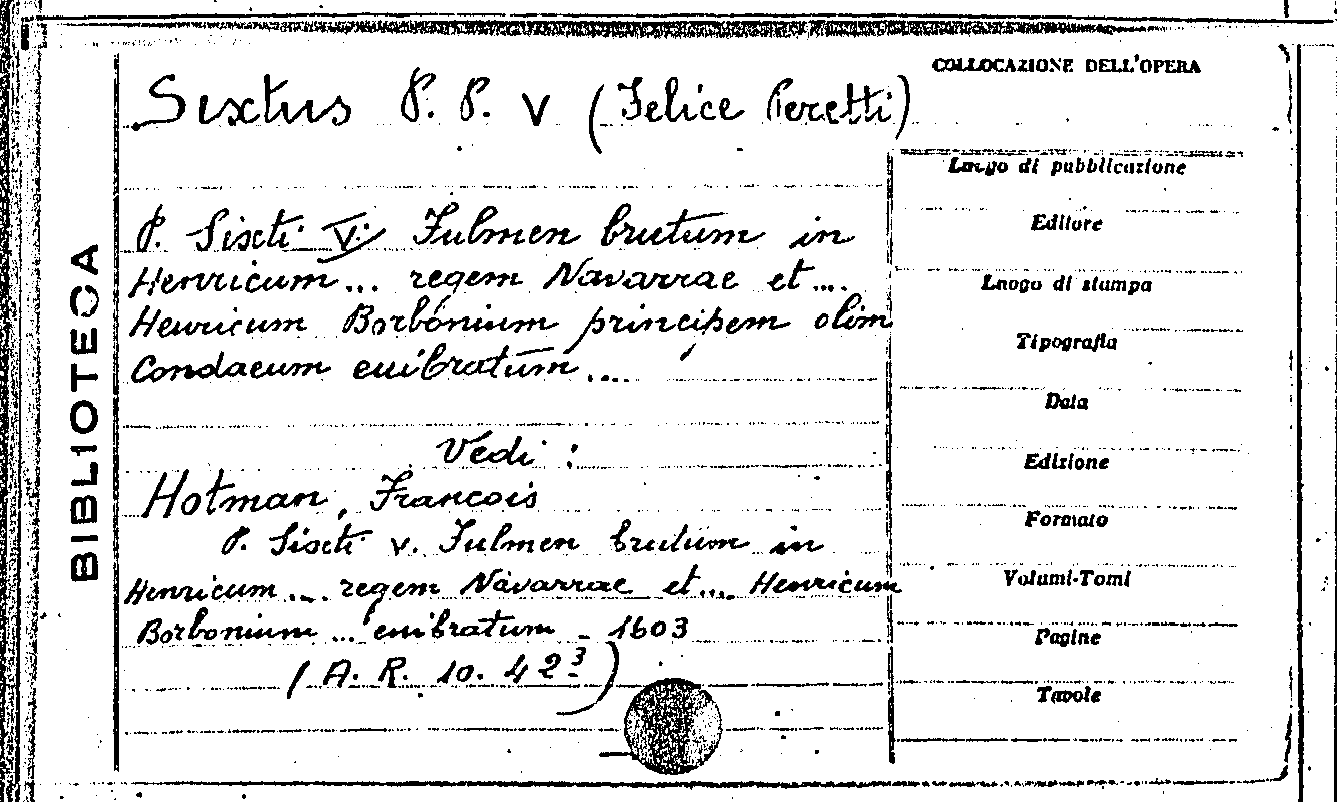 COLLOCAZIONE DELL'OPERA
Sixtus P. P. V (Felice Peretti)
P. Sixti V. Fulmen brutum in
Henricum... regem Navarrae et ....
Henricum Borbonium principem olim
Condaeum evibratum ....
Vedi :
Hotman, Francois
P. Sixti V. Fulmen brutum in
Henricum .... regem Navarrae et .... Henricum
Borbonium ... evibratum - 1603
(A. R. 10. 42 3)
BIBLIOTECA
Luogo di pubblicazione
Editore
Luogo di stampa
Tipografia
Data
Edizione
Formato
Volumi-Tomi
Pagine
Tavole